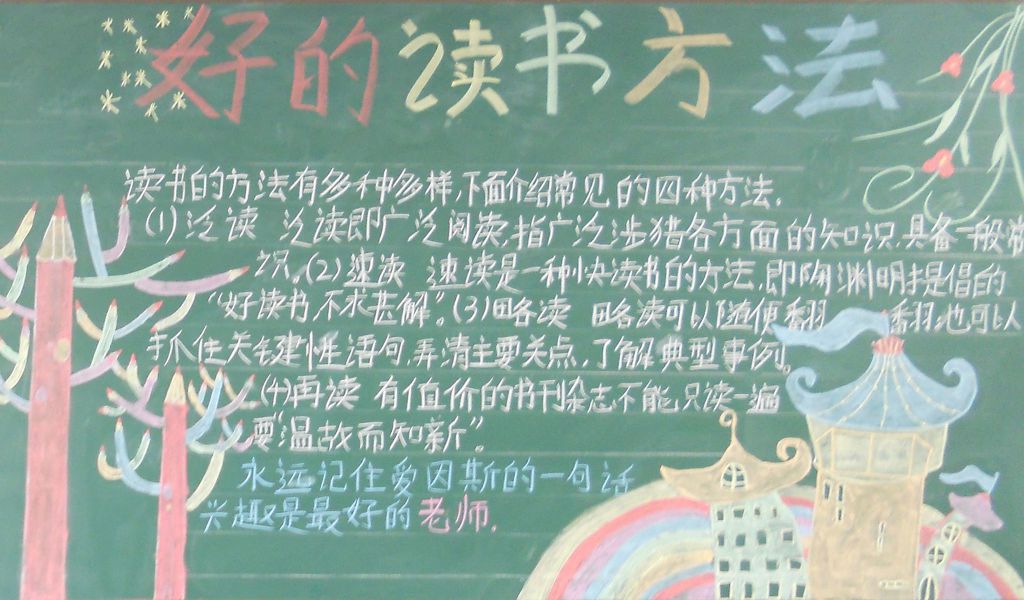 好的读书方法
读书的方法有多种多样,下面介绍常见的四种方法.
(1)泛读 泛读即广泛阅读,指广泛涉猎各方面的知识,具备一般常
识。(2)速读 速读是一种快读书的方法,即陶渊明提倡的
“好读书,不求甚解”。(3)略读 略读可以随便翻 翻,也可以
抓住关键性语句,弄清主要关点,了解典型事例。
(4)再读 有值价的书刊杂志不能只读一遍
要“温故而知新”。
永远记住爱因斯的一句话
兴趣是最好的老师.